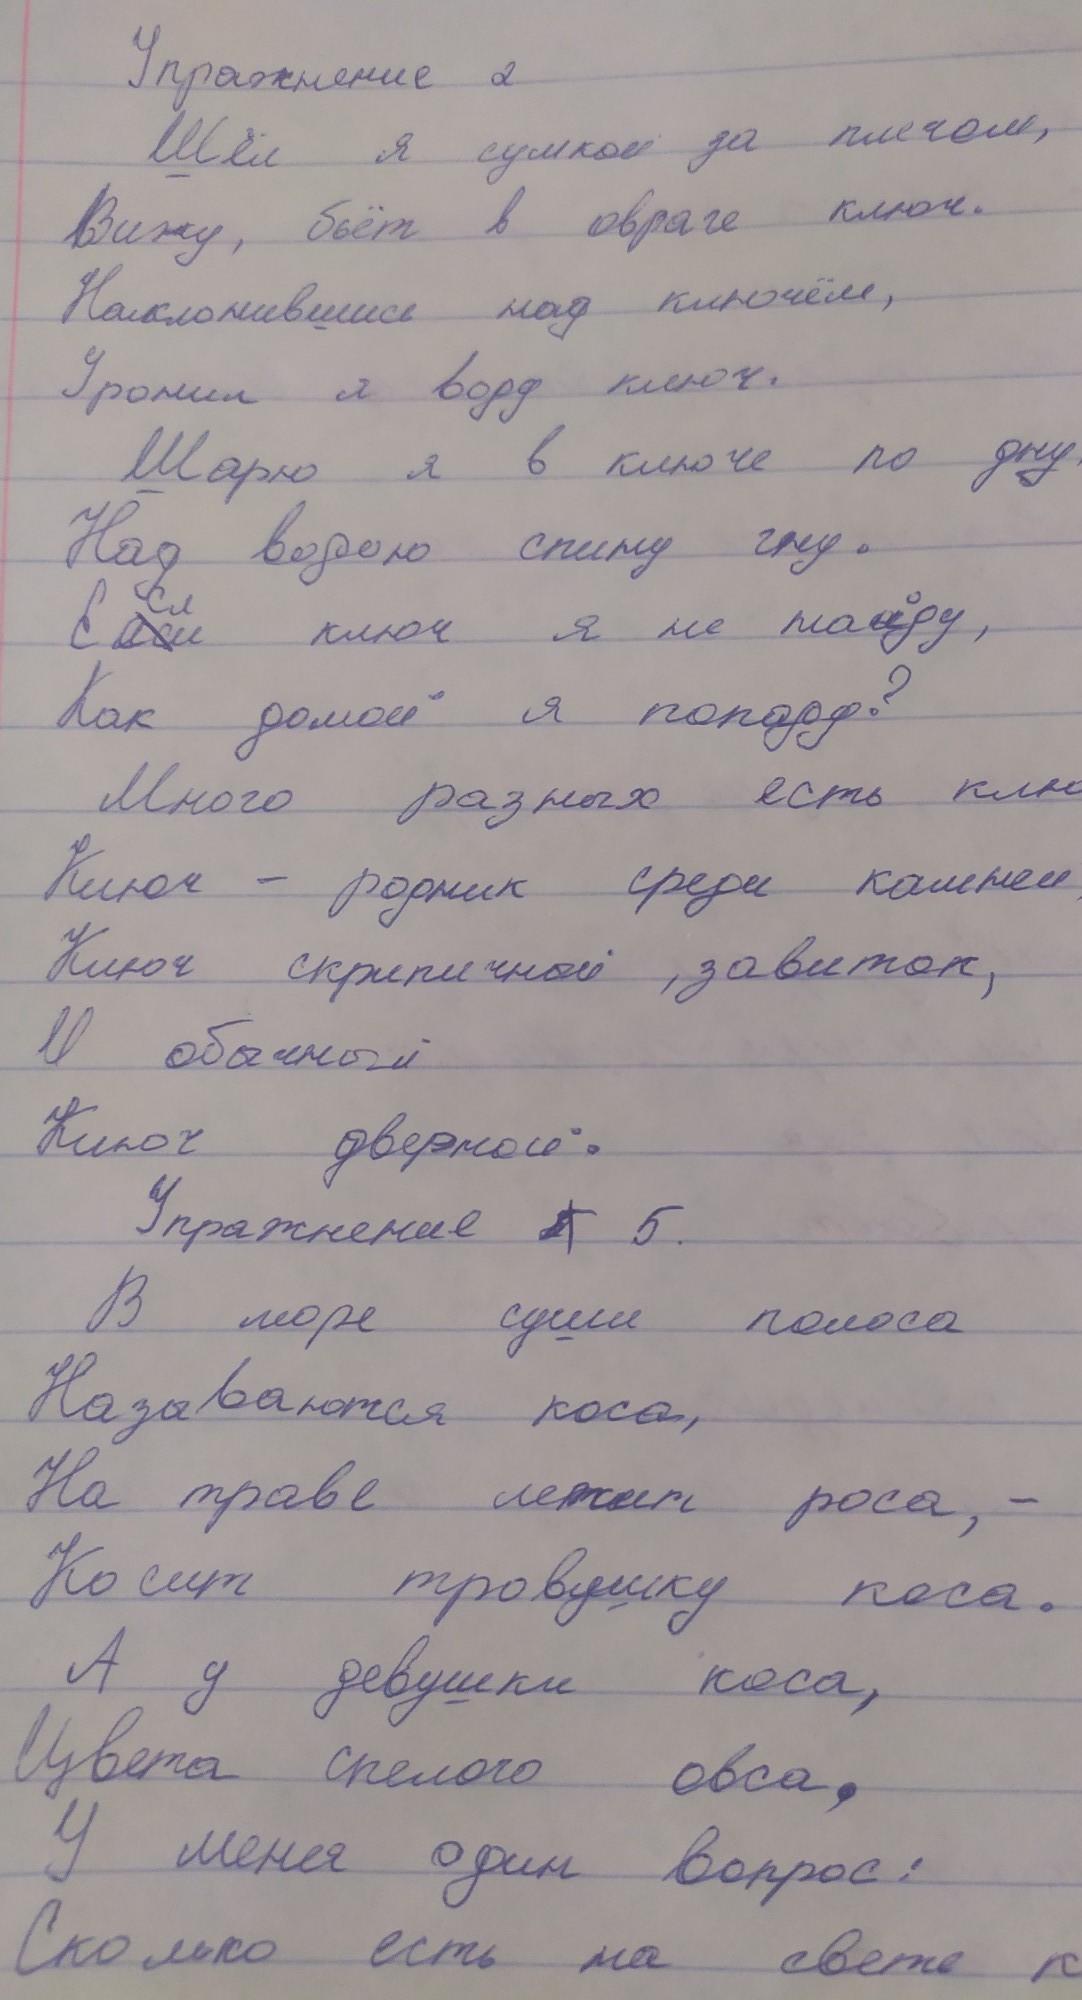 Упражнение 2
Шёл я сумкой за плечом,
Вижу, бьёт в овраге ключ.
Наклонившись над ключём,
Уронил я воду ключ.
Шарю я в ключе по дну,
Над водою спину гну.
Если ключ я не найду,
Как домой я попаду?
Много разных есть клю
Ключ - родник среди камней,
Ключ скрипичной, завиток,
И обычный
Ключ дверной.
Упражнение 5.
В море суши полоса
Называются коса,
На траве лежит роса, -
Косит тровушку коса.
А у девушки коса,
Цвета спелого овса.
У меня один вопрос:
Сколько есть на свете к